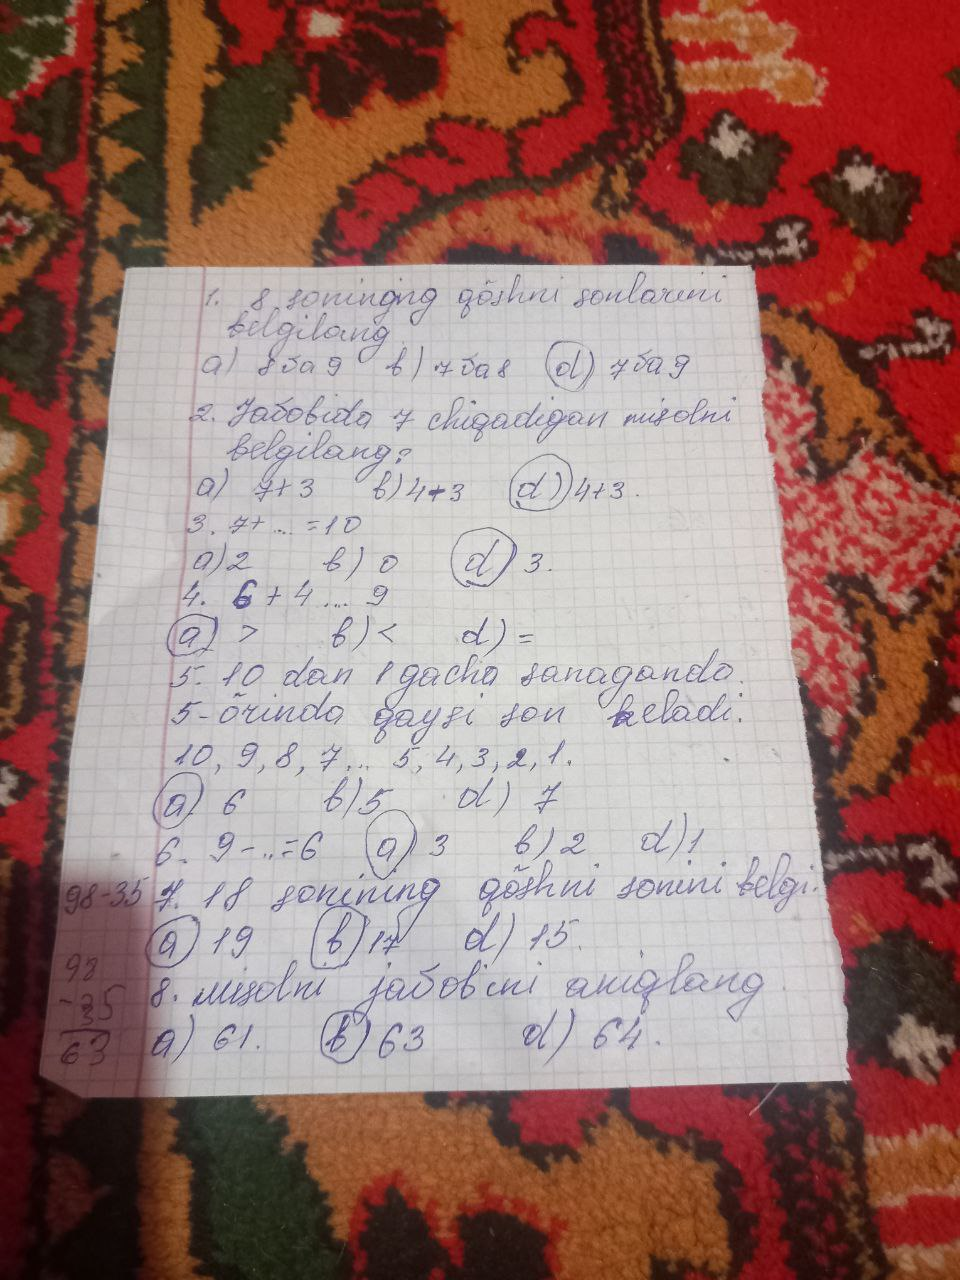 1. 8 sonining qŏshni sonlarini
belgilang
a) 8 va 9 в) 7 va 8 d) 7 va 9
2. Javobida 7 chiqadigan misolni
belgilang:
a) 7+3 в) 4+3 d) 4+3.
3. 7+ ... =10
a) 2 в) 0 d) 3.
4. 6 + 4 ... 9
a) > в) < d) =
5. 10 dan 1 gacha sanaganda.
5-ŏrinda qaysi son keladi.
10, 9, 8, 7 ... 5, 4, 3, 2, 1.
a) 6 в) 5 d) 7
6. 9 - ... = 6 a) 3 в) 2 d) 1
98-35 7. 18 sonining qŏshni sonini belgi.
a) 19 в) 17 d) 15.
98
-35
63
8. misolni javobini aniqlang
a) 61. в) 63 d) 64.